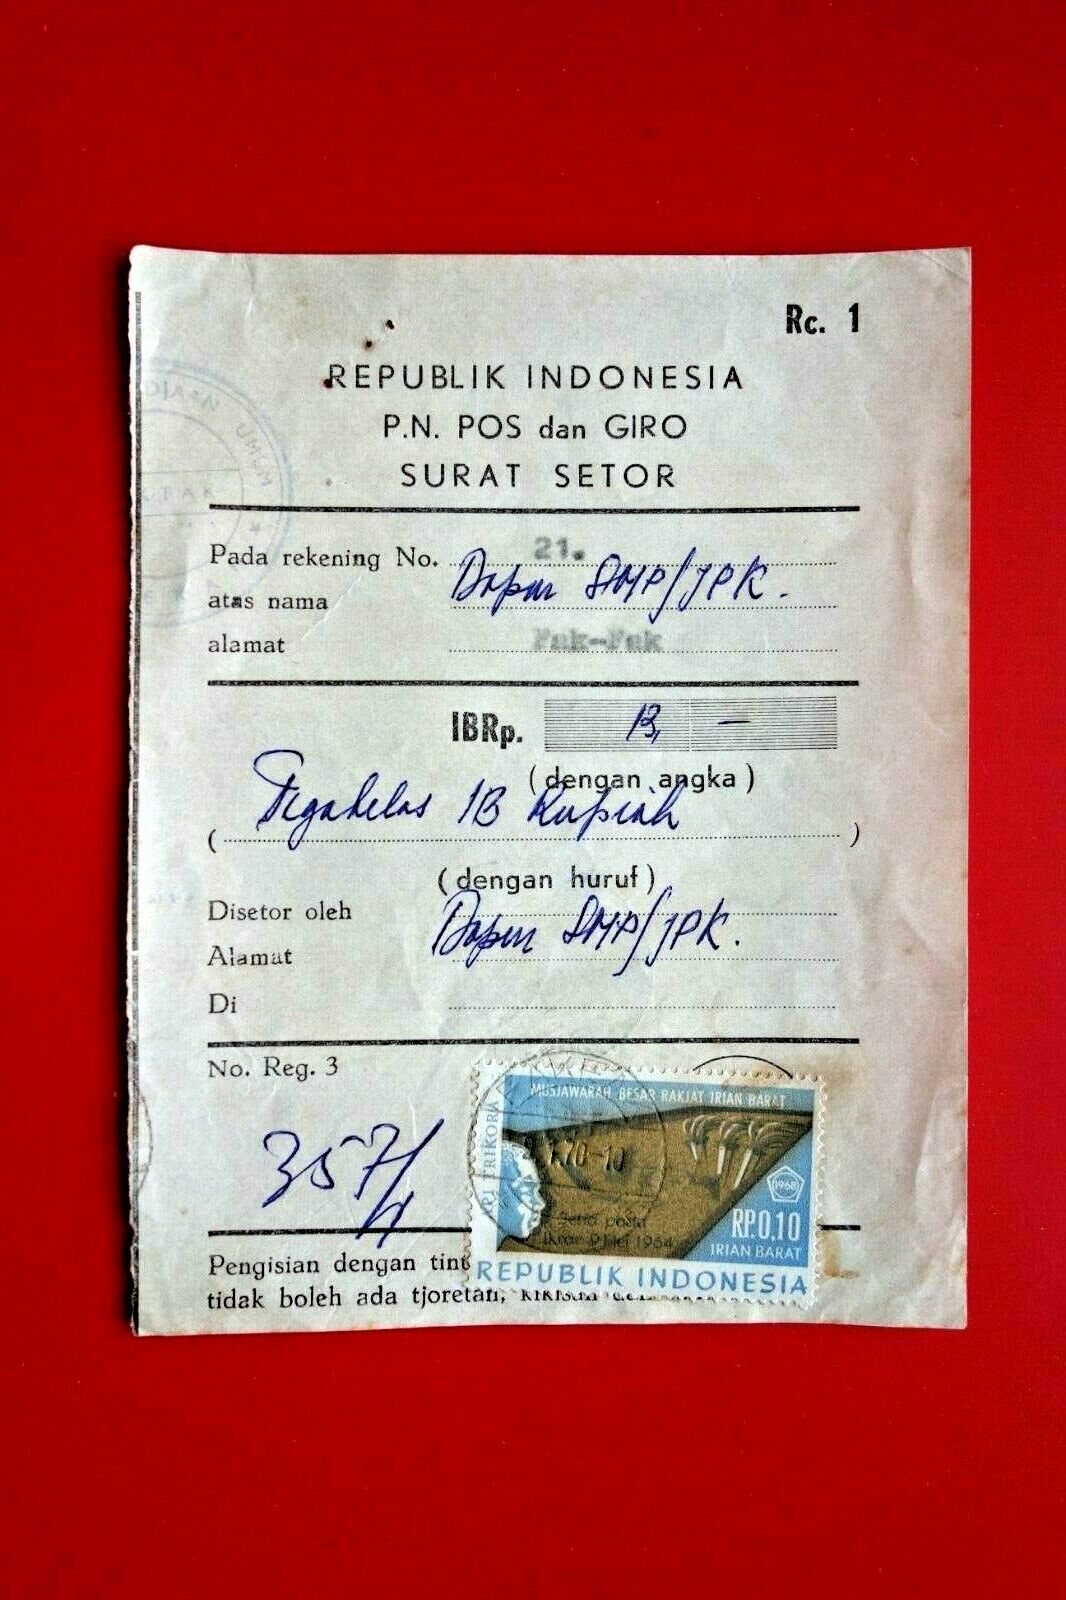 Rc. 1
REPUBLIK INDONESIA
P.N. POS dan GIRO
SURAT SETOR
Pada rekening No. 21.
atas nama Dapur SMP/JPK.
alamat Fak-Fak
IBRp. 13, —
(dengan angka)
( Tigabelas IB Rupiah )
(dengan huruf)
Disetor oleh Dapur SMP/JPK.
Alamat
Di
No. Reg. 3
357/4
MUSJAWARAH BESAR RAKJAT IRIAN BARAT
TRIKORA
70-10
1968
RP.0,10
IRIAN BARAT
9 Mei 1964
REPUBLIK INDONESIA
Pengisian dengan tint
tidak boleh ada tjoretan,
UMUM